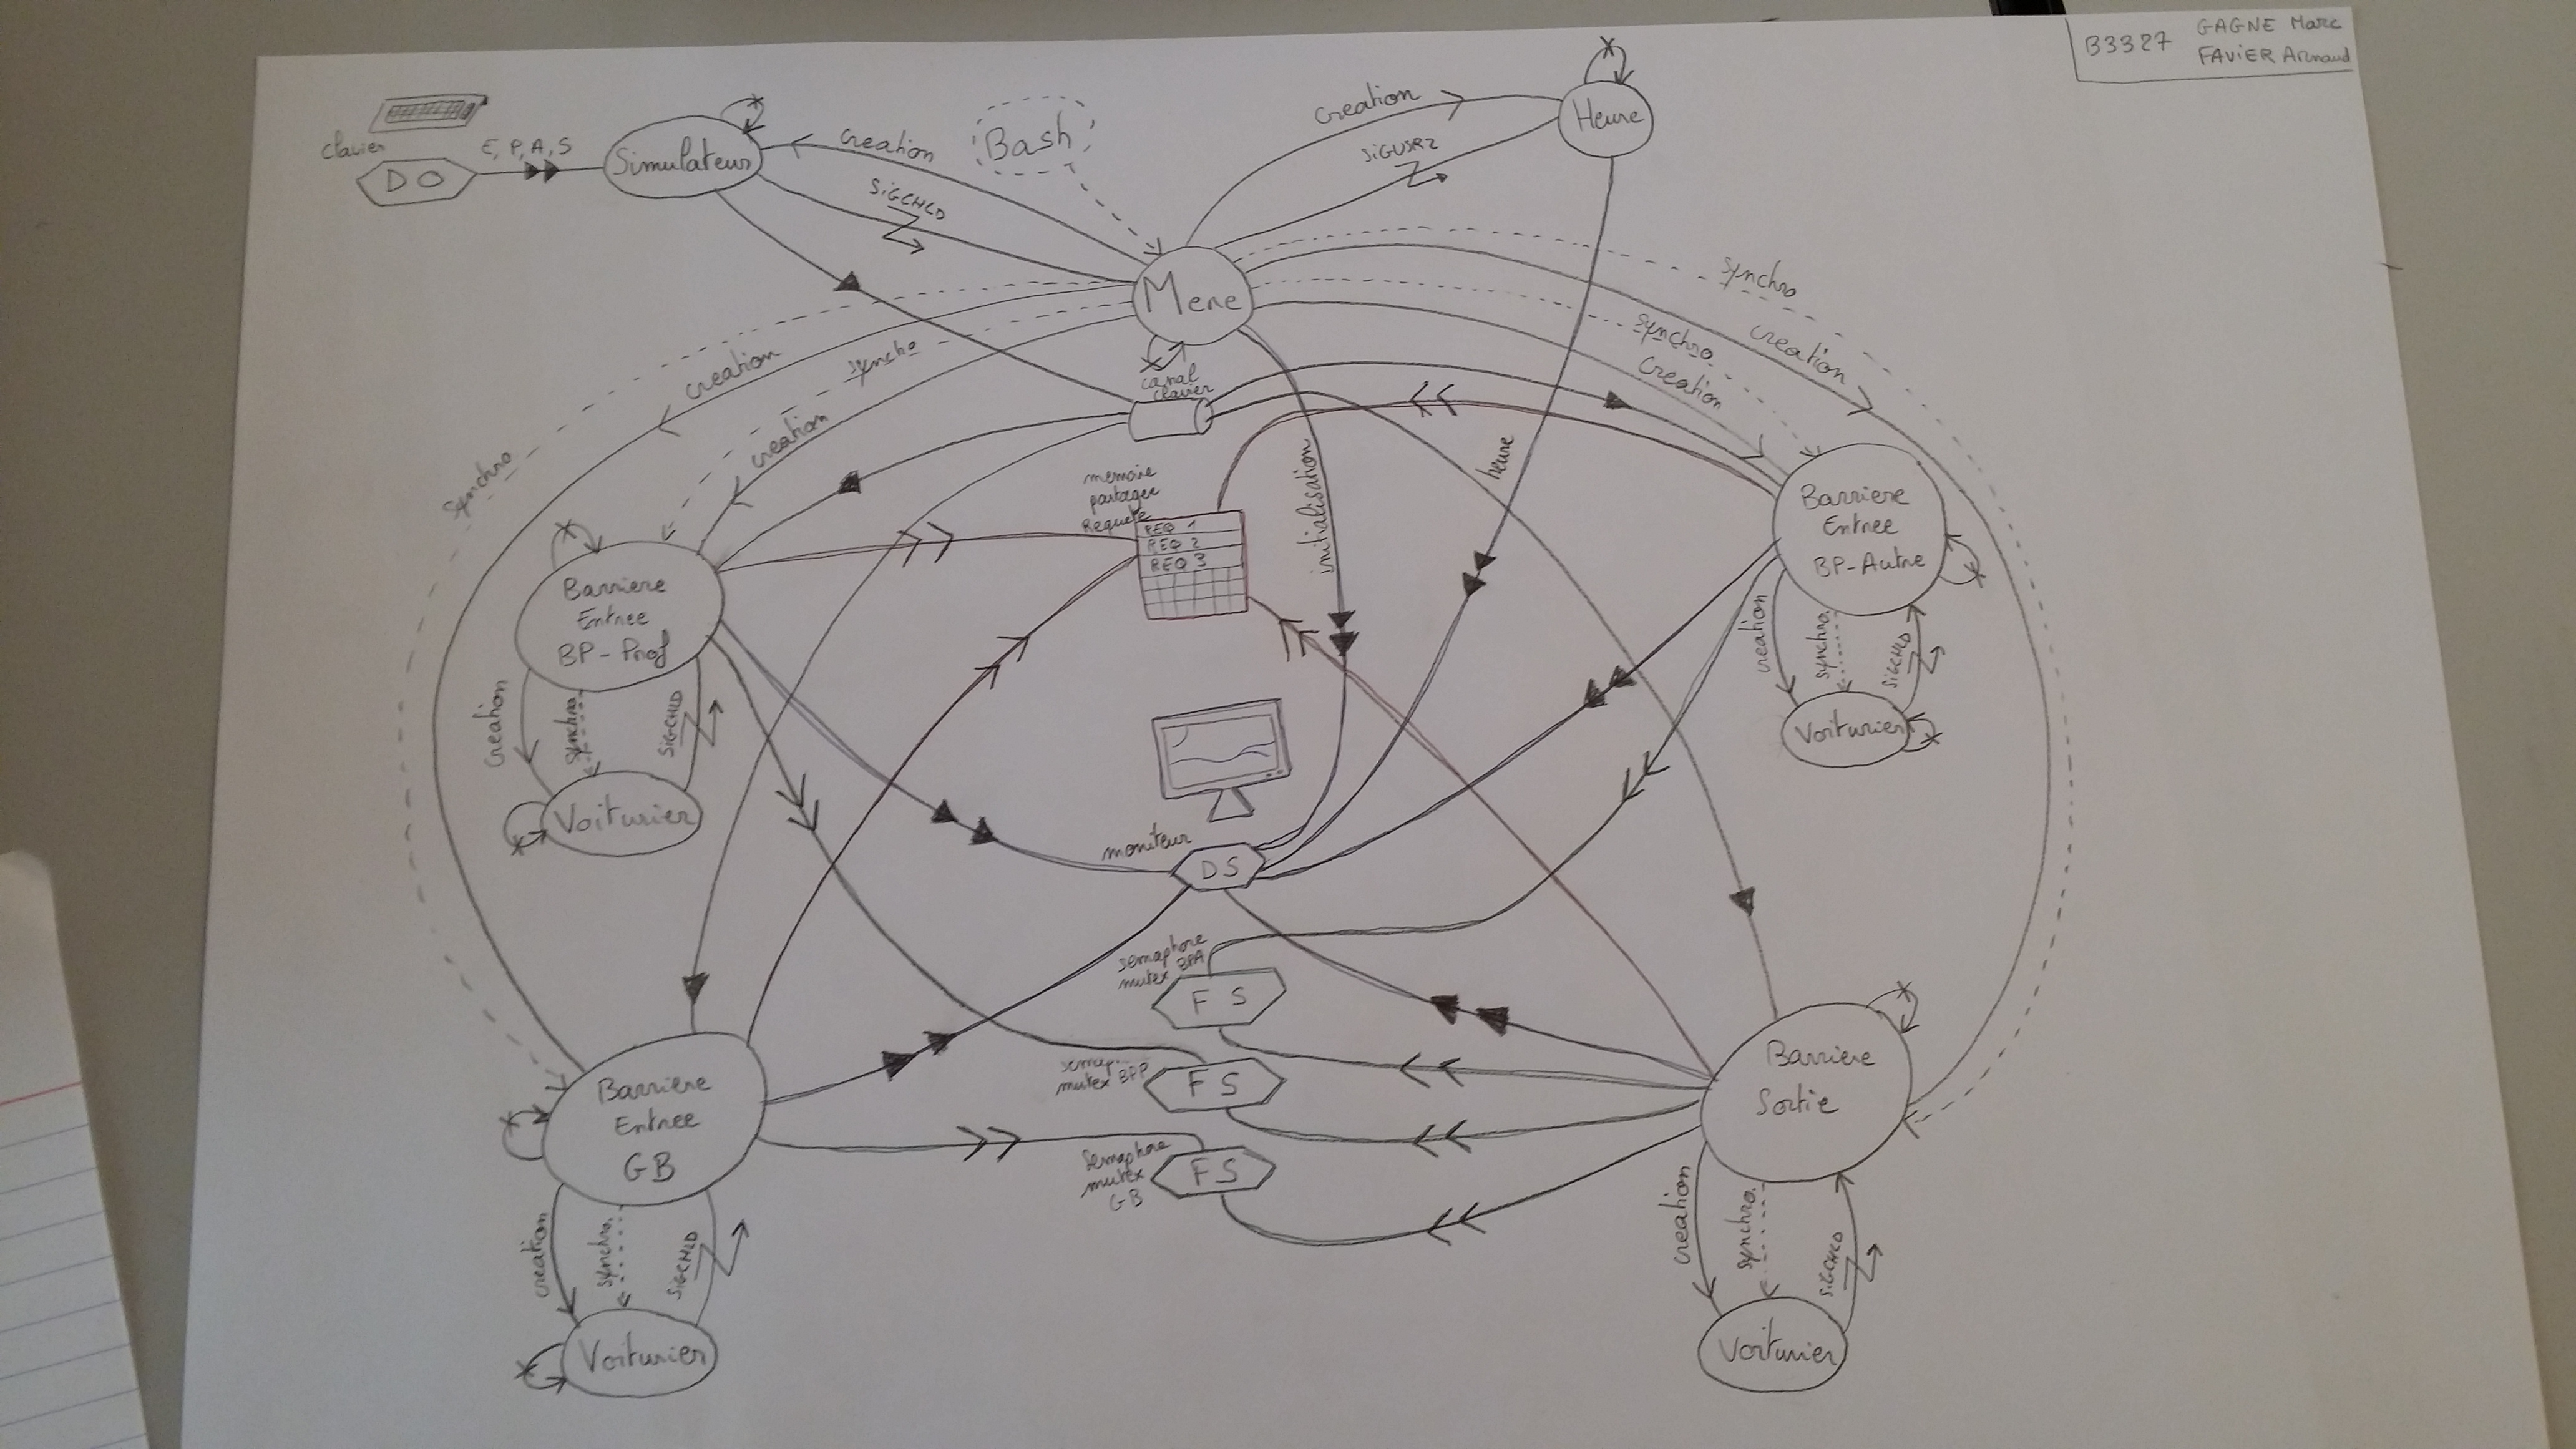 B3327 GAGNE Marc
FAVIER Arnaud
clavier
DO
E, P, A, S
Simulateur
creation
SIGCHLD
Bash
creation
SIGUSR2
Heure
Mere
synchro
creation
synchro
creation
synchro
creation
synchro
creation
canal
clavier
initialisation
heure
memoire
partagee
Requete
REQ 1
REQ 2
REQ 3
Barriere
Entree
BP-Prof
creation
synchro
SIGCHLD
Voiturier
Barriere
Entree
BP-Autre
creation
synchro
SIGCHLD
Voiturier
moniteur
DS
semaphore
mutex BPA
FS
mutex BPP
FS
Semaphore
mutex
GB
FS
Barriere
Entree
GB
creation
synchro
SIGCHLD
Voiturier
Barriere
Sortie
creation
synchro
SIGCHLD
Voiturier